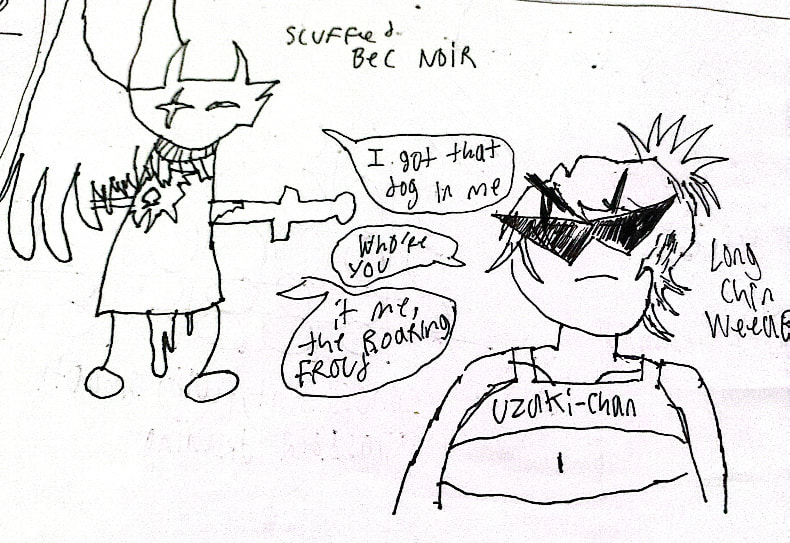 SCUFFED
BEC NOIR
I got that
dog in me
WhO're
YOU
it me,
the ROARING
FROUd
Long
Chin
WEEDE
UZAKi-Chan